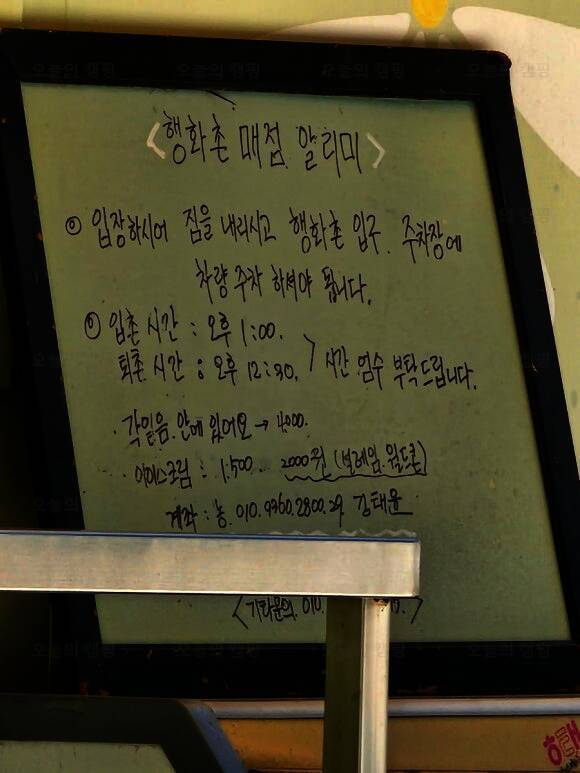 <행화촌 매점 알리미>
◎ 입장하시어 짐을 내리시고 행화촌 입구 주차장에
차량 주차 하셔야 됩니다.
◎ 입촌 시간 : 오후 1:00.
퇴촌 시간 : 오후 12:30. > 시간 엄수 부탁드립니다.
· 각얼음. 안에 있어요 → 4,000.
· 아이스크림 : 1.500. 2000원 (브레임. 월드콘)
계좌 : 농. 010.9360.2800.29 김태윤
<기타문의. 010.
오늘의 캠핑